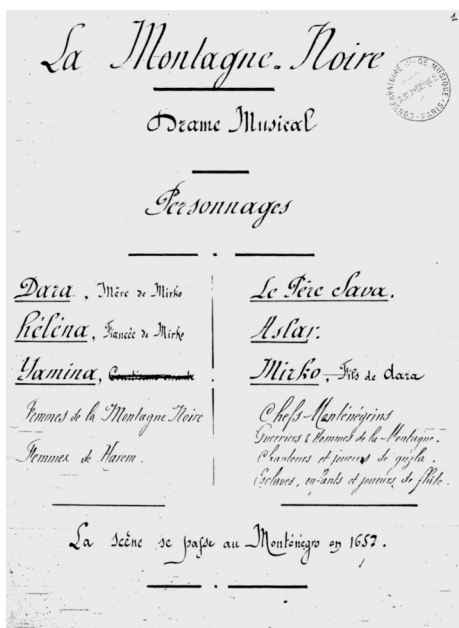 1
La Montagne-Noire
CONSERVATOIRE DE MUSIQUE PARIS
Drame Musical
Personnages
Dara, Mère de Mirko
Héléna, Fiancée de Mirko
Yamina,
Femmes de la Montagne Noire
Femmes de Harem.
Le Père Sava.
Aslar.
Mirko, Fils de dara
Chefs Monténégrins
Guerriers & Hommes de la Montagne.
Chanteurs et joueurs de guzla.
Esclaves, enfants et joueurs de flûte.
La scène se passe au Monténégro en 1657.